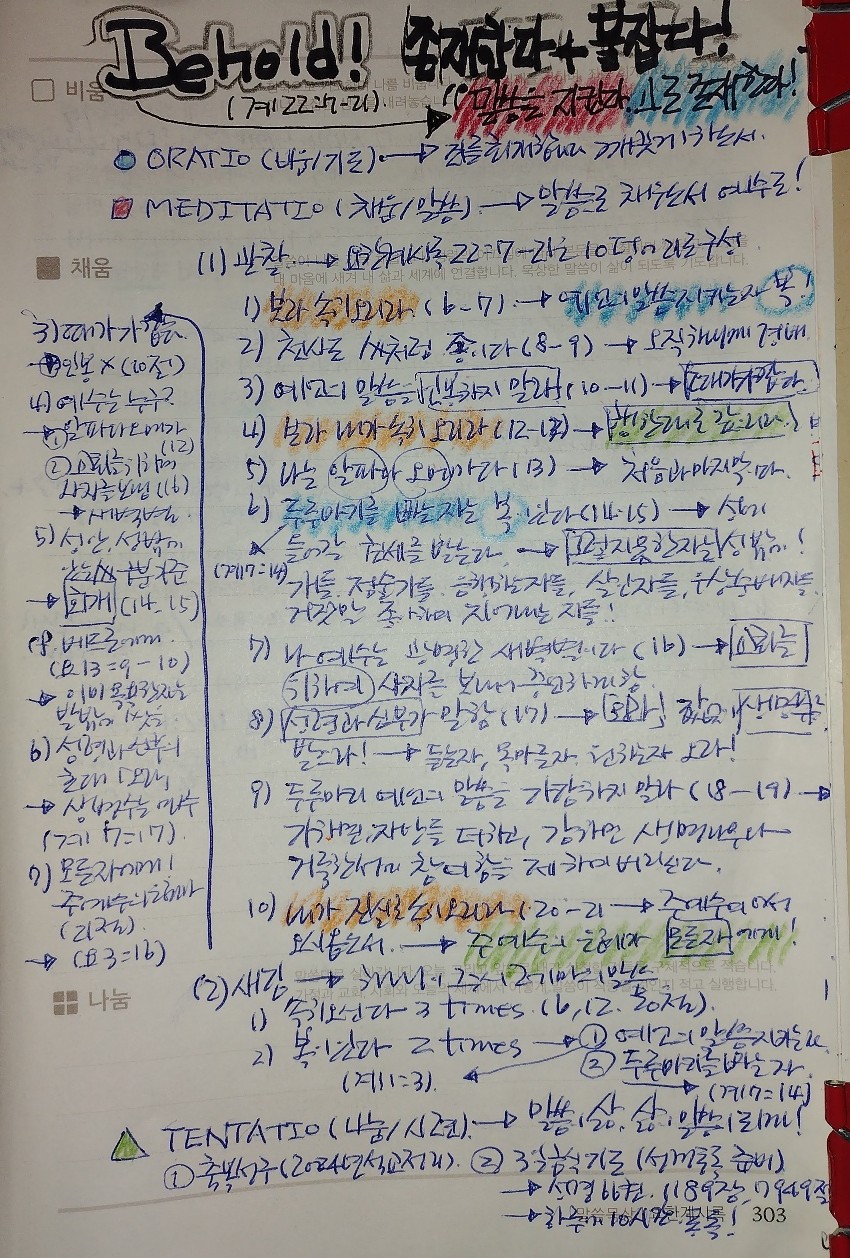 Behold! 존재한다 + 붙잡다!
(계 22:7-21). "말씀을 지킨다 고로 존재한다!
비움
ORATIO (비움/기도)
MEDITATIO (채움/말씀). → 말씀으로 채우소서 예수로!
채움
(1) 관찰. → 요한계시록 22:7-21은 10 덩어리로 구성.
대 마음에 새겨 내 삶과 세계에 연결합니다. 묵상한 말씀이 삶이 되도록 기도합니다.
1) 보라 속히 오리라 (6-7) → 예언의 말씀 지키는 자 복!
2) 천사도 종이다 (8-9) → 오직 하나님께 경배
3) 예언의 말씀을 인봉하지 말라 (10-11) → 때가 가깝다
4) 보라 내가 속히 오리라 (12-13) → 행한대로 갚으리라
5) 나는 알파와 오메가라 (13) → 처음과 마지막이다.
6) 두루마기를 빠는 자는 복 있다 (14-15) →
들어갈 권세를 받는다. → 성밖에!
개들. 점술가들. 음행하는 자들, 살인자들, 우상숭배자들.
거짓말 좋아하며 지어내는 자들!
(계 7:14)
7) 나 예수는 광명한 새벽별이다 (16) → 교회를
위하여 사자를 보내어 증언하게 함.
8) 성령과 신부가 말함 (17) → 오라! 값없이 생명수를
받으라! → 듣는 자, 목마른 자. 원하는 자 오라!
9) 두루마리 예언의 말씀을 가감하지 말라 (18-19). →
가하면 재앙들 더하고, 감하면 생명나무와
거룩한 성에 참여함을 제하여 버리신다.
10) 내가 진실로 속히 오리라 (20-21 → 주 예수여 어서
오시옵소서. → 주 예수의 은혜가 모든 자에게!
3) 때가 가깝다.
→ 인봉 X (10절)
4) 예수는 누구?
→ ① 알파와 오메가
(12)
② 교회를 위하여
사자를 보냄 (16)
→ 새벽별.
5) 성안, 성밖에
→ 회개 (14-15)
예. 베드로에게.
(요 13:9-10)
→ 이미 목욕한 자는
발밖에 씻을
6) 성령과 신부의
초대 "오라"
→ 생명수는 예수
(계 7:17).
7) 모든 자에게!
주 예수의 은혜가
(21절).
→ (요 3:16)
(2) 새김 →
1) 속히 오신다 3 times. (6, 12. 20절).
2) 복 있다 2 times → ① 예언의 말씀 지키는 자
② 두루마기를 빠는 자.
(계 1:3). → (계 7:14)
나눔
TENTATIO (나눔/시련). → 말씀이 삶, 삶이 말씀이 되게!
① 축복성구 (2024년 설교정리). ② 3일 금식기도
→ 성경 66권. 1189장,
→ 하루에 10시간 통독!
303